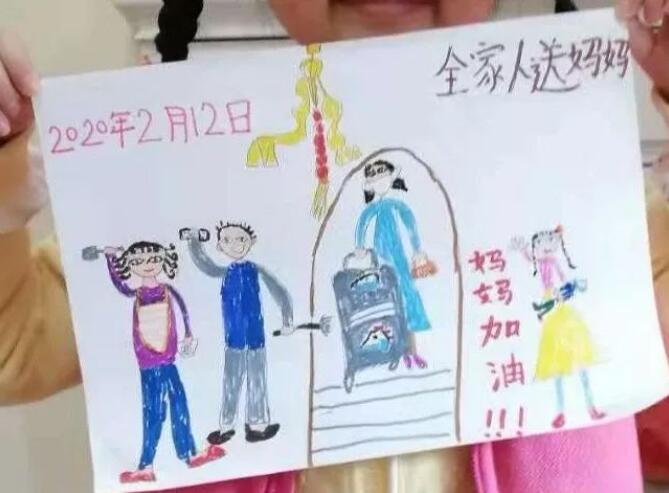 全家人送妈妈
2020年2月12日
妈妈加油!!!